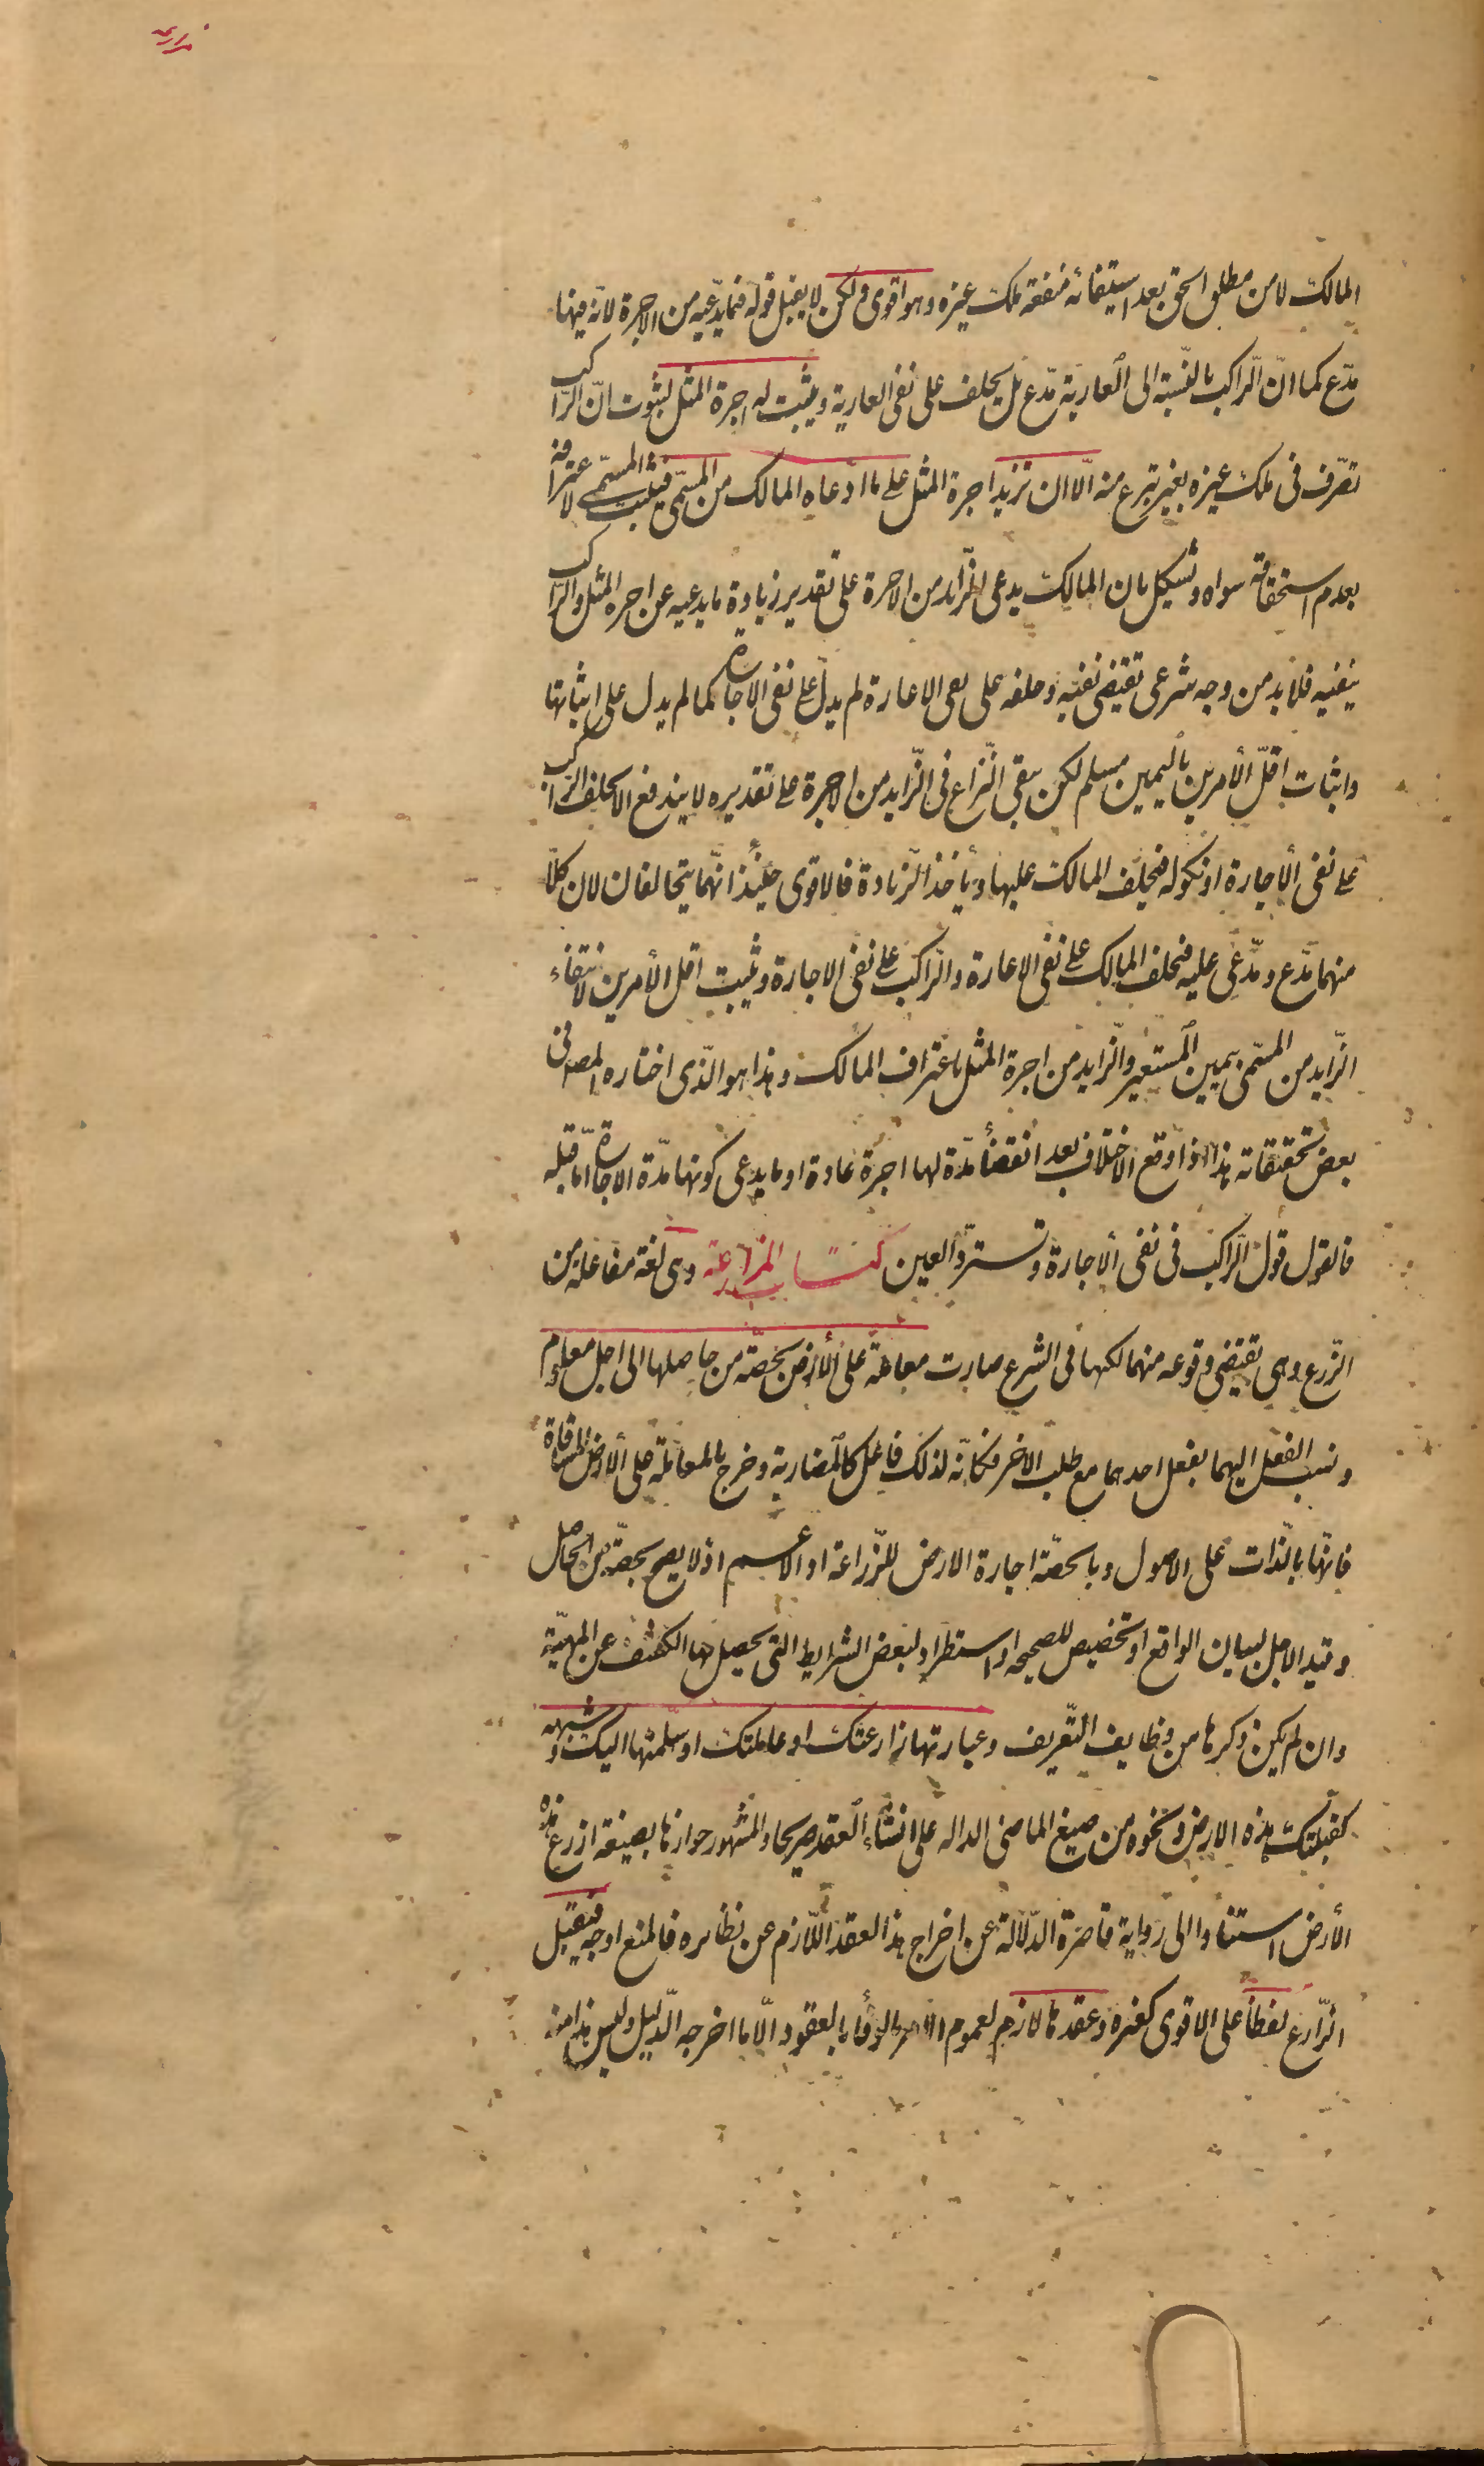 المالك لا من مطلق الحق بعد استيفائه منفعة ملك غيره وهو اقوى ولكن لا يقبل قوله فيما يدّعيه من الاجرة لانّه فيها
مدّع كما انّ الرّاكب بالنّسبة الى العارية مدّع بل يحلف على نفى العارية ويثبت له اجرة المثل لثبوت انّ الرّاكب
تصرّف فى ملك غيره بغير تبرع منه الّا ان تزيد اجرة المثل على ما ادّعاه المالك من المسمّى فيثبت المسمّى لاعترافه
بعدم استحقاقه سواه ويشكل بان المالك يدعى الزّايد من الاجرة على تقدير زيادة ما يدعيه عن اجره المثل والرّاكب
ينفيه فلابد من وجه شرعى تقيتضى نفيّه وحلفه على نفى الاعارة لم يدلّ على نفى الاجارة كما لم يدل على اثباتها
واثبات اقلّ الأمرين باليمين مسلم لكن يبقى النّزاع فى الزّايد من الاجرة على تقديره لا يندفع الا بحلف الرّاكب
على نفى الاجارة او نكوله فيحلف المالك عليها ويأخذ الزّيادة فالاقوى حينئذ انّهما يتحالفان لان كلّا
منهما مدّع ومدّعى عليه فيحلف المالك على نفى الاعارة والرّاكب على نفى الاجارة ويثبت اقل الأمرين لانتفاء
الزّايد من المسمّى بيمين المستعير والزّايد من اجرة المثل باعتراف المالك وهذا هو الّذى اختاره المصه فى
بعض تحقيقاته هذا اذا وقع الاختلاف بعد انقضأ مدّة لها اجرة عادة او ما يدعى كونها مدّة الاجارة امّا قبله
فالقول قول الرّاكب فى نفى الاجارة وتستردّ العين كتاب المزارعة وهى لغة مفاعلة من
الزّرع وهى تقتيضى وقوعه منهما لكنها فى الشرع صارت معاملة على الأرض بحصّة من حاصلها الى اجل معلوم
ونسب الفعل اليهما بفعل احدهما مع طلب الاخر فكانّه لذلك فاعل كالمضاربة وخرج بالمعاملة على الأرض المساقاة
فانّها بالذّات على الاصول وبالحصّة اجارة الارض للزّراعة او الاعم اذ لا يصح بحصّة من الحاصل
وقيد الاجل لبيان الواقع او تخصيص للصحيحه او استطراد لبعض الشرايط التى يحصيل بها الكشف عن المهيّة
وان لم يكن ذكرها من وظايف التّعريف وعبارتها زارعتك او عاملتك او سلّمتها اليك وشبهه
كقبلتك هذه الارض ونحوه من صيغ الماضى الداله على انشأء العقد صريحا والمشهور جوازها بصيغة ازرع هذه
الأرض استنادا الى رواية قاصرة الدّلالة عن اخراج هذا العقد اللّازم عن نظايره فالمنع اوجه فيقبل
الزّارع لفظا على الاقوى كغيره وعقدها لازم لعموم الامر بالوفأ بالعقود الّا ما اخرجه الدّليل وليس هذا منه